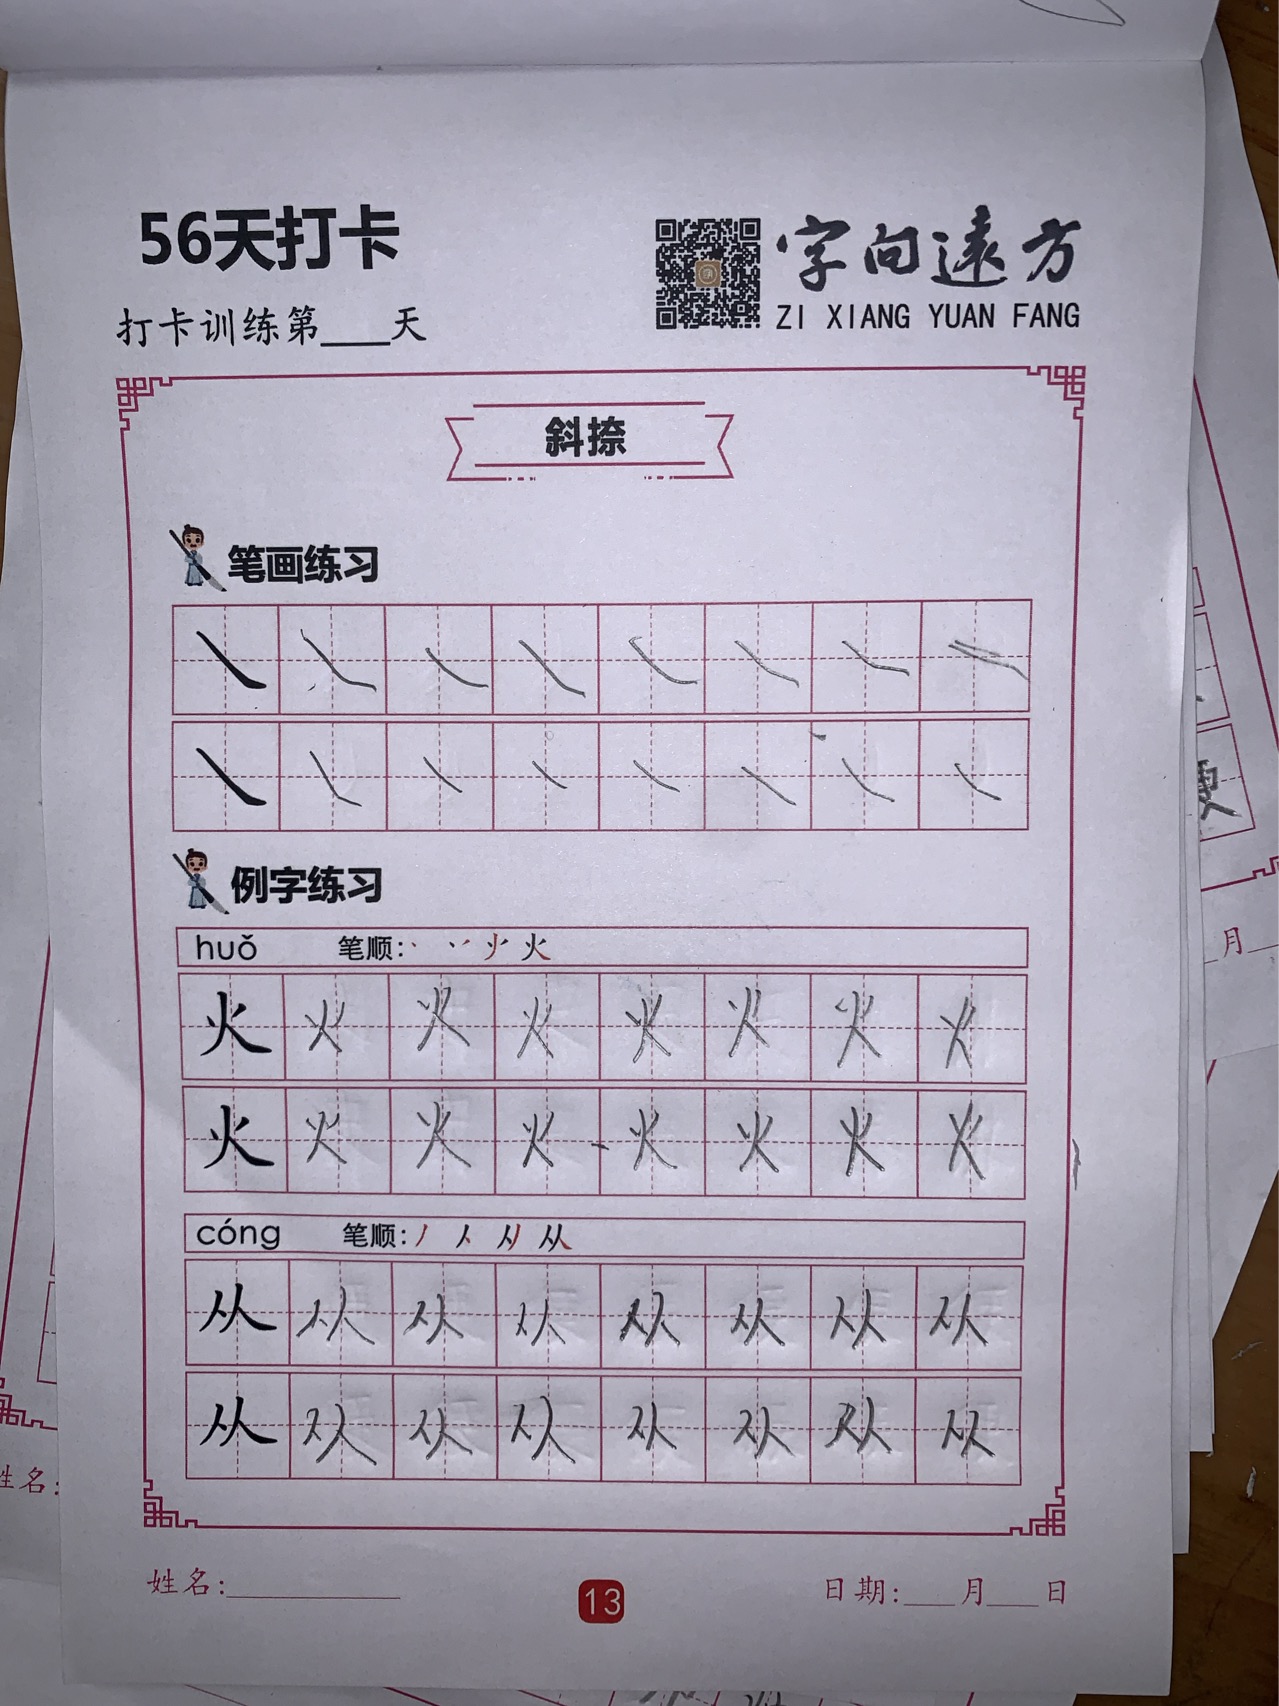 56天打卡
字向遠方
打卡训练第____天
ZI XIANG YUAN FANG
斜捺
笔画练习
例字练习
huǒ 笔顺: 火
火 火 火 火 火 火 火 火
火 火 火 火 火 火 火 火
cóng 笔顺: 从
从 从 从 从 从 从 从 从
从 从 从 从 从 从 从 从
姓名:
13
日期:____月____日
月
姓名: